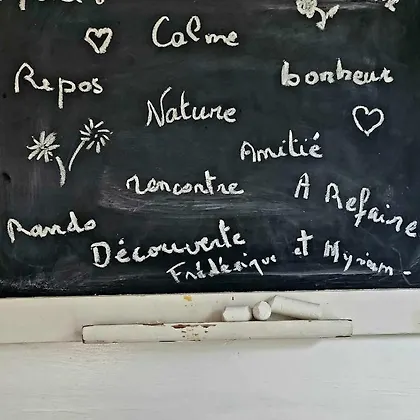 Calme
Repos
bonheur
Nature
Amitié
rencontre
A Refaire
Rando
Découverte
Frédérique et Myriam